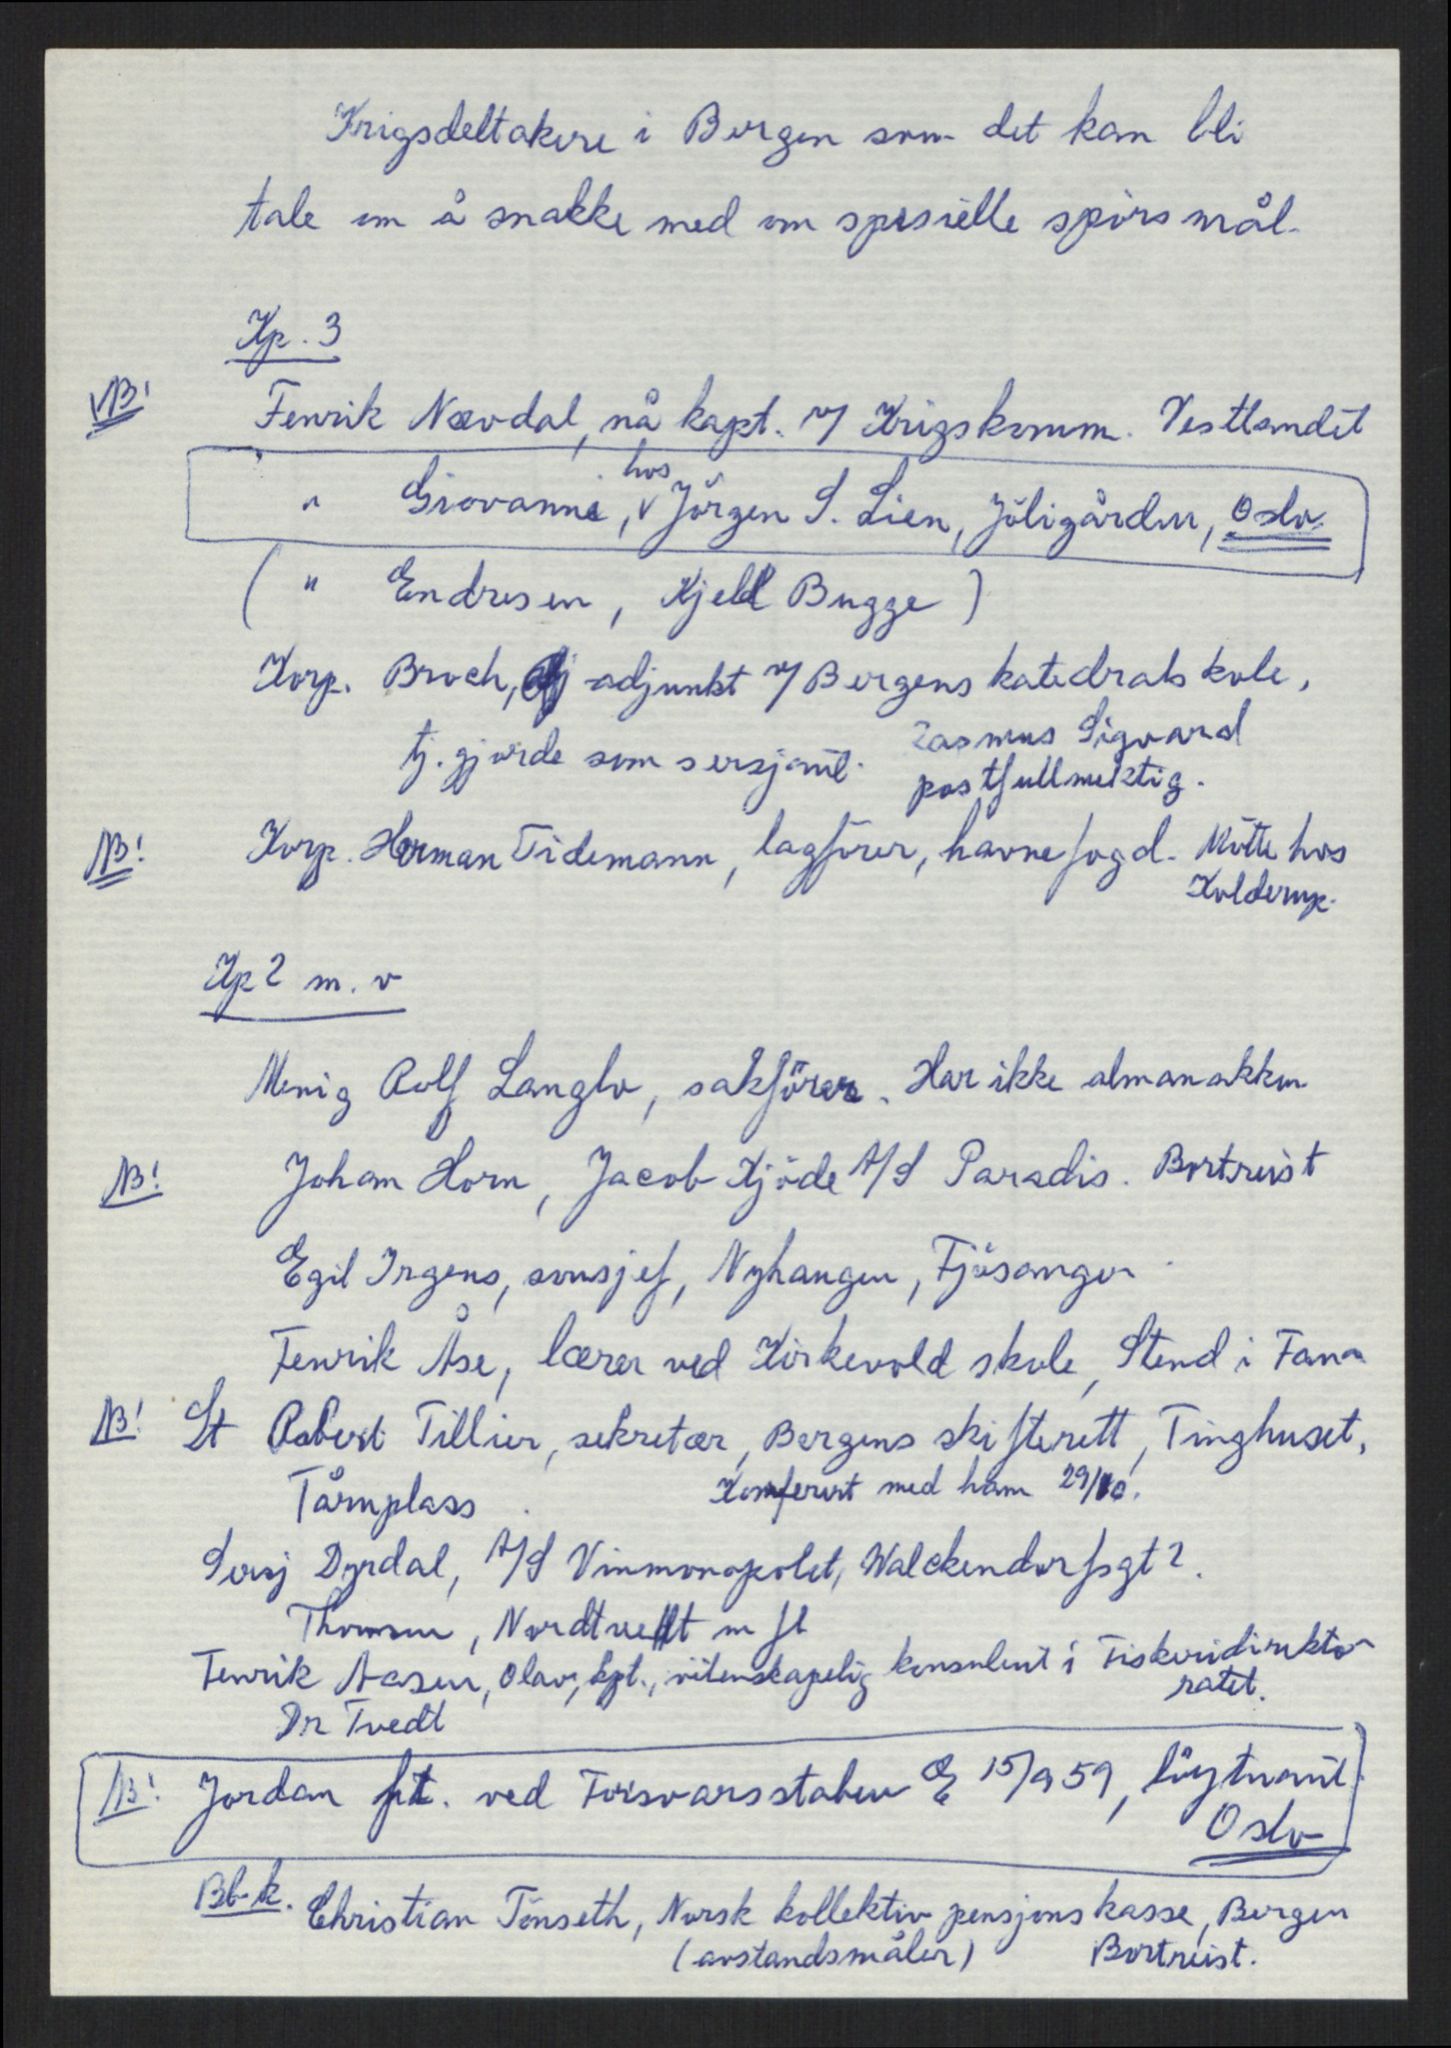 Krigsdeltakere i Bergen som det kan bli
tale om å snakke med om spesielle spörsmål.
Kp. 3
NB! Fenrik Nævdal, nå kapt. v/ Krigskomm. Vestlandet
" Giovanni, hos Jörgen S. Lien, Jöligården, Oslo.
( " Endresen, Kjell Bugge )
Korp. Broch, adjunkt v/ Bergens katedralskole,
tj.gjorde som sersjant. Rasmus Sigvard
postfullmektig.
NB! Korp. Herman Tidemann, lagförer, havnefogd. Mötte hos
Kolderup.
Kp 2 m. v
Menig Rolf Langlo, sakförer. Har ikke almanakken
NB! Johan Horn, Jacob Kjöde A/S Paradis. Bortreist
Egil Irgens, kontorsjef, Nyhaugen, Fjösanger.
Fenrik Åse, lærer ved Kirkevold skole, Stend i Fana
NB! Lt Robert Tillier, sekretær, Bergens skifterett, Tinghuset,
Tårnplass. Konferert med ham 29/10.
Sersj Dyrdal, A/S Vinmonopolet, Walckendorfsgt 2.
Thomsen, Nordtvedt m fl
Fenrik Aasen, Olav, kpt., vitenskapelig konsulent i Fiskeridirekto-
ratet.
Dr Tvedt
NB! Jordan pt. ved Forsvarsstaben E 15/9 59, löytnant.
Oslo
Bb.k. Christian Tönseth, Norsk kollektiv pensjonskasse, Bergen
(avstandsmåler) Bortreist.